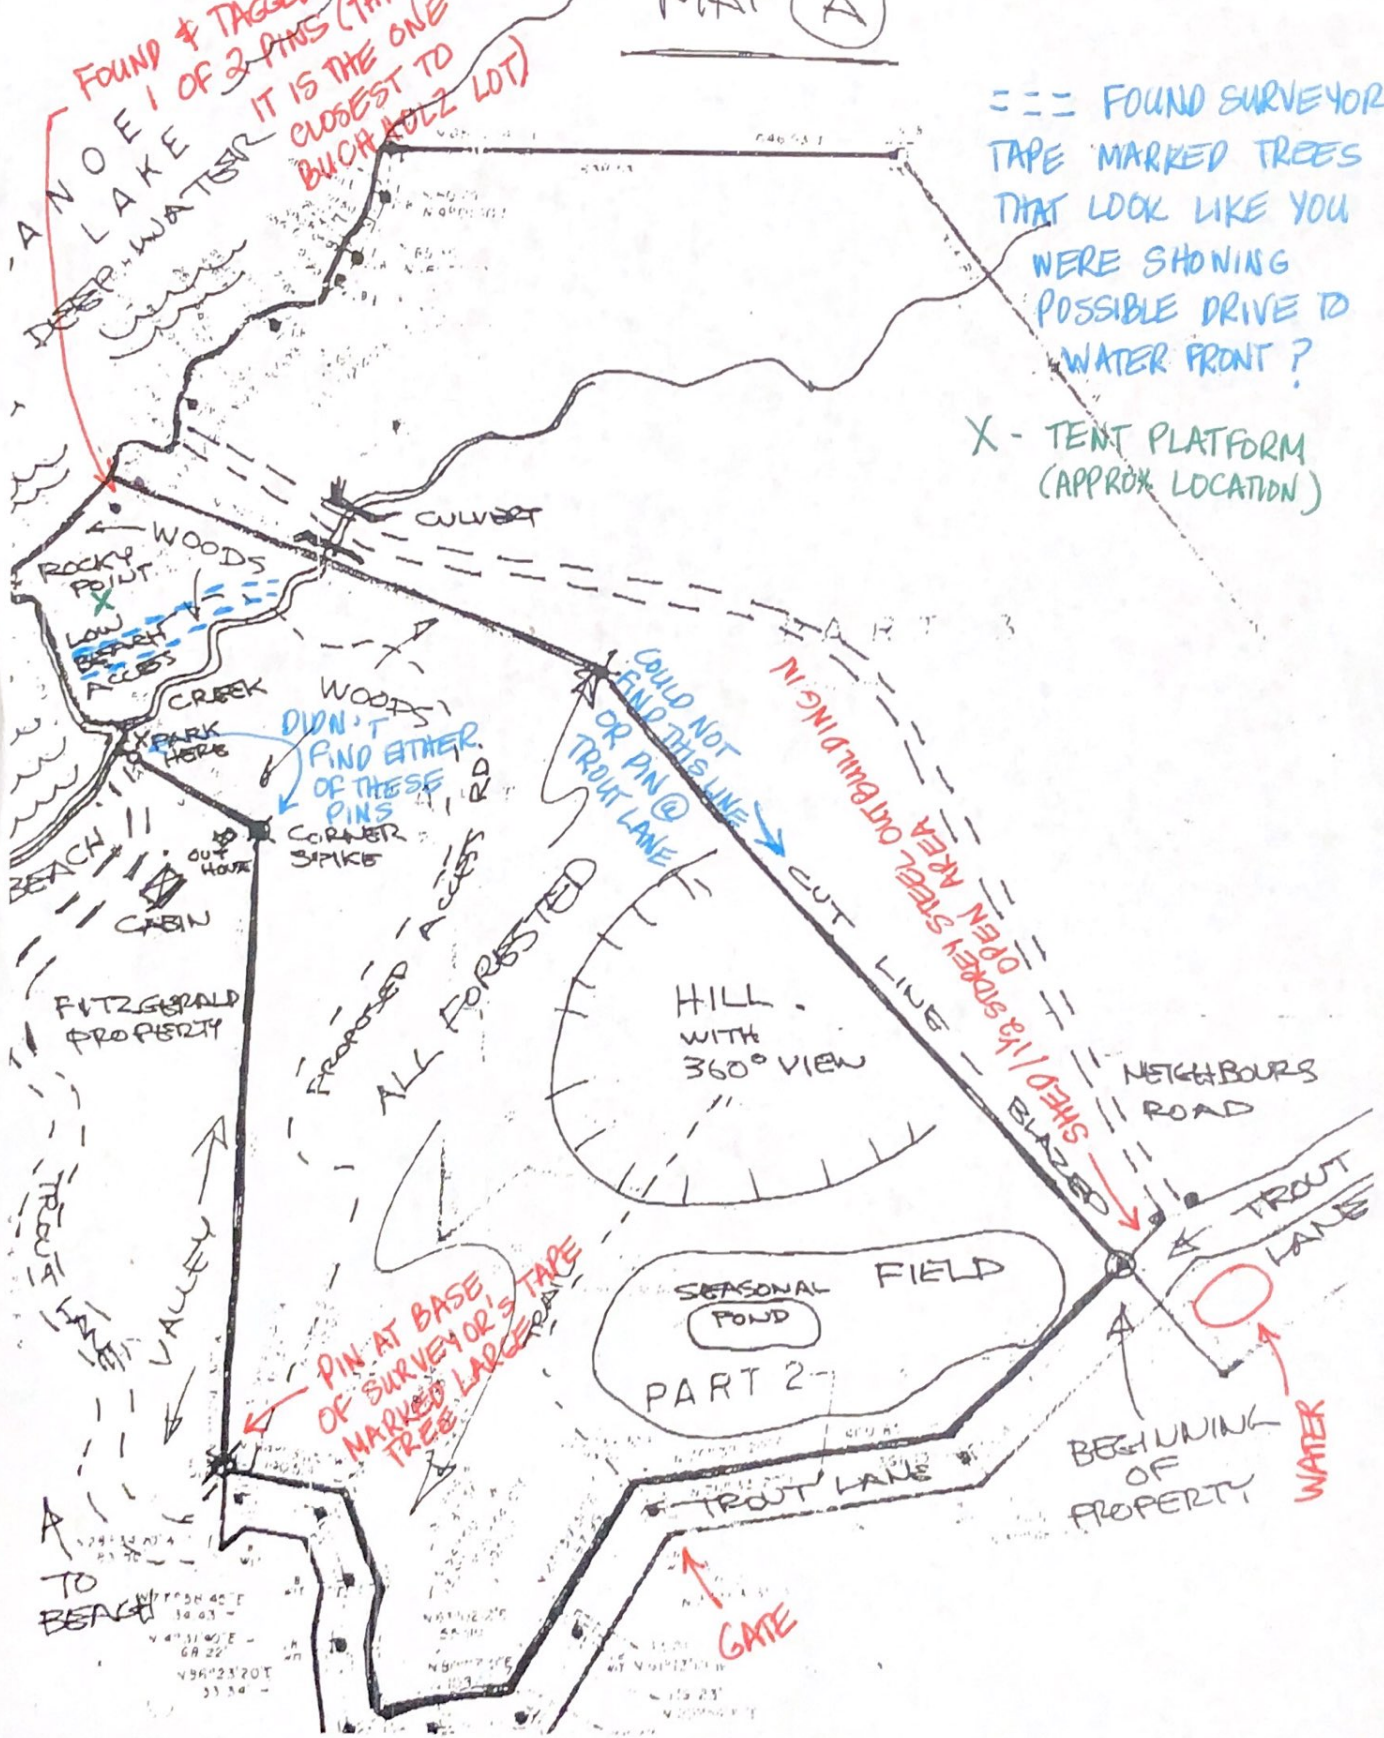 MAP A
FOUND & TAGGED
1 OF 2 PINS
IT IS THE ONE
CLOSEST TO
BUCHHOLZ LOT)
ANOE
LAKE
DEEP WATER
=== FOUND SURVEYOR
TAPE MARKED TREES
THAT LOOK LIKE YOU
WERE SHOWING
POSSIBLE DRIVE TO
WATER FRONT ?
X - TENT PLATFORM
(APPROX LOCATION)
CULVERT
WOODS
ROCKY
POINT
X
LOW
BEACH
ACCESS
CREEK
WOODS
X PARK
HERE
DIDN'T
FIND EITHER
OF THESE
PINS
CORNER
SPIKE
OUT
HOUSE
BEACH
CABIN
COULD NOT
FIND THIS LINE
OR PIN @
TROUT LANE
PART 3
SHED/1½ STOREY STEEL OUTBUILDING IN
OPEN AREA
CUT LINE - BLAZED
PROPOSED ACCESS RD.
ALL FORESTED
HILL
WITH
360° VIEW
FITZGERALD
PROPERTY
NEIGHBOURS
ROAD
TROUT
LANE
VALLEY
TRAIL
PIN AT BASE
OF SURVEYOR'S TAPE
MARKED LARGE
TREE
SEASONAL
POND
FIELD
PART 2
TROUT LANE
BEGINNING
OF
PROPERTY
WATER
GATE
TO
BEACH